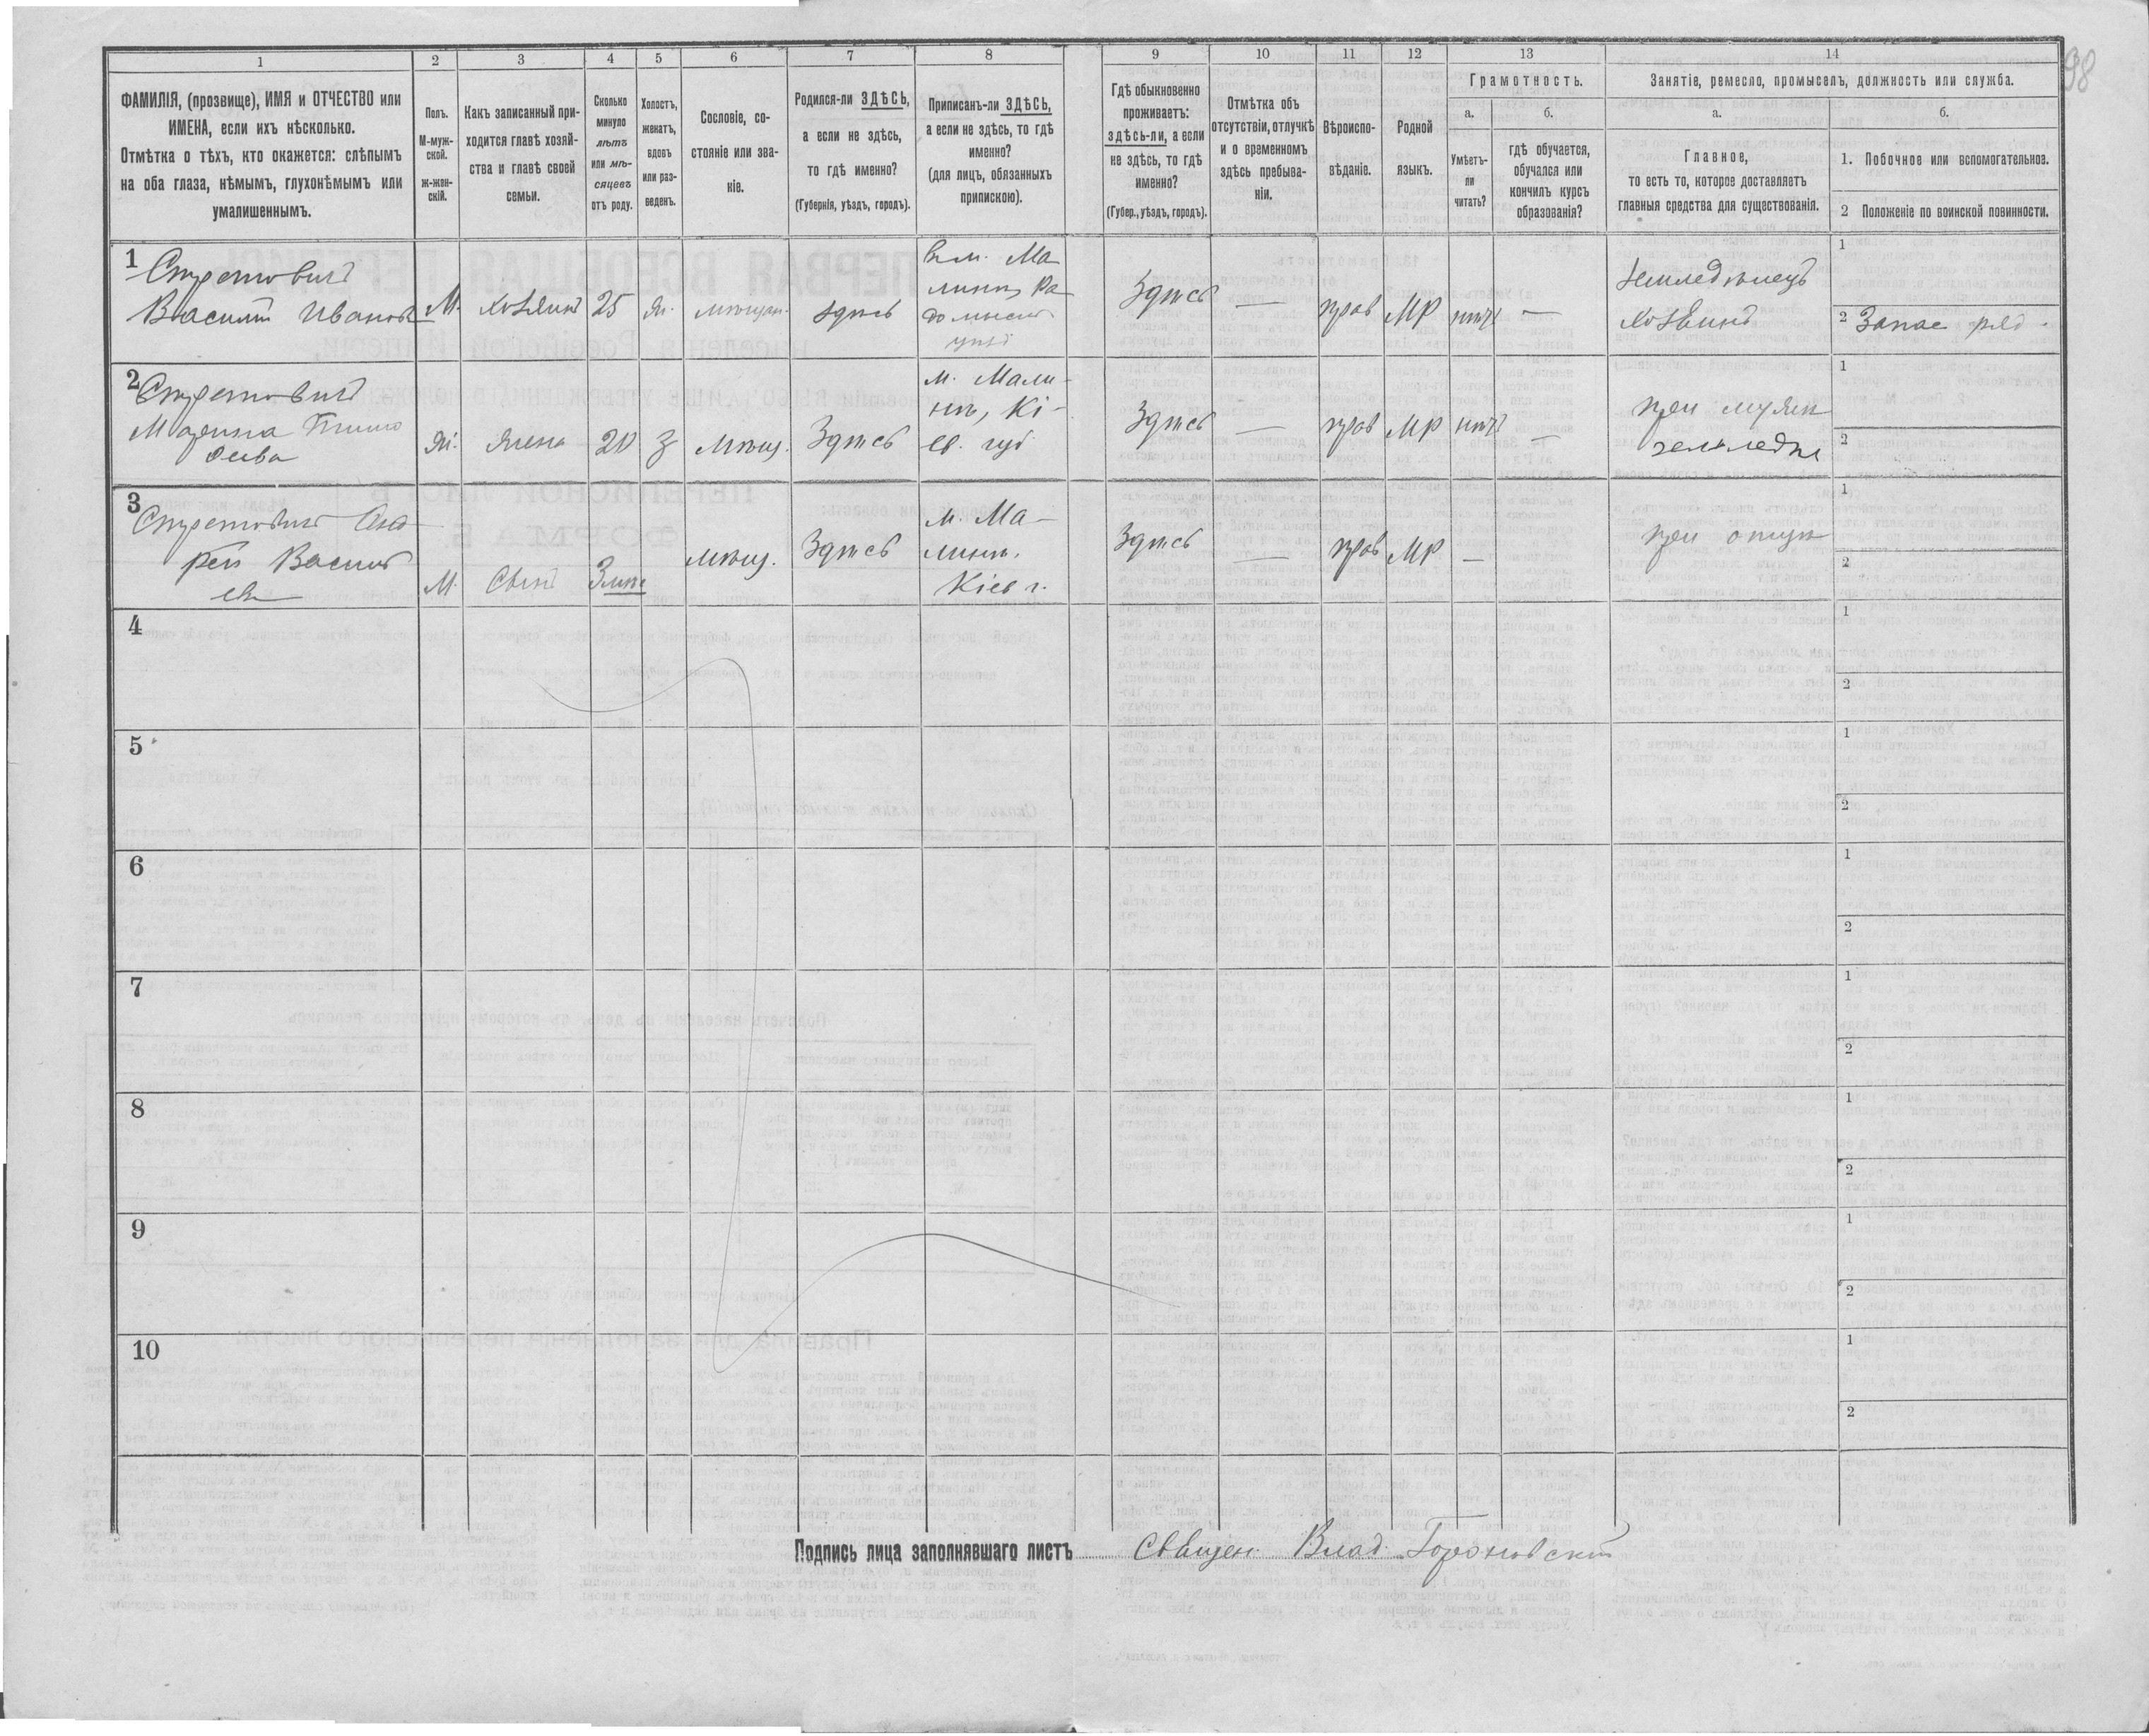 98
1
2
3
4
5
6
7
8
9
10
11
12
13
14
ФАМИЛІЯ, (прозвище), ИМЯ и ОТЧЕСТВО или
ИМЕНА, если ихъ нѣсколько.
Отмѣтка о тѣхъ, кто окажется: слѣпымъ
на оба глаза, нѣмымъ, глухонѣмымъ или
умалишеннымъ.
Полъ.
М-муж-
ской.
ж-жен-
скій.
Какъ записанный при-
ходится главѣ хозяй-
ства и главѣ своей
семьи.
Сколько
минуло
лѣтъ
или мѣ-
сяцевъ
отъ роду.
Холостъ,
женатъ,
вдовъ
или раз-
веденъ.
Сословіе, со-
стояніе или зва-
ніе.
Родился-ли ЗДѢСЬ,
а если не здѣсь,
то гдѣ именно?
(Губернія, уѣздъ, городъ).
Приписанъ-ли ЗДѢСЬ,
а если не здѣсь, то гдѣ
именно?
(для лицъ, обязанныхъ
припискою).
Гдѣ обыкновенно
проживаетъ:
здѣсь-ли, а если
не здѣсь, то гдѣ
именно?
(Губер., уѣздъ, городъ).
Отмѣтка объ
отсутствіи, отлучкѣ
и о временномъ
здѣсь пребыва-
ніи.
Вѣроиспо-
вѣданіе.
Родной
языкъ.
Грамотность.
а.
б.
Умѣетъ-
ли
читать?
гдѣ обучается,
обучался или
кончилъ курсъ
образованія?
Занятіе, ремесло, промыселъ, должность или служба.
а.
б.
Главное,
то есть то, которое доставляетъ
главныя средства для существованія.
1. Побочное или вспомогательное.
2 Положеніе по воинской повинности.
1
Василій Иванов
М. хозяинъ 25 ж. мѣщан. здѣсь
Ма
лина, Ра
домысл
уѣзд
Здѣсь — прав МР нѣтъ —
Земледѣлецъ
хозяинъ
1
2 Запас ряд.
2
Марина
Ж. жена 20 з мѣщ. Здѣсь
м. Мали-
нъ, Кі-
ев. губ
Здѣсь — прав МР нѣтъ —
при мужѣ
земледѣл
1
2
3
Анд
рей Василь
ев
М. Сынъ мѣщ. Здѣсь
м. Ма-
линъ.
Кіев г.
Здѣсь — прав МР —
при отцѣ
1
2
4
1
2
5
1
2
6
1
2
7
1
2
8
1
2
9
1
2
10
1
2
Подпись лица заполнявшаго листъ Священ. Влад.